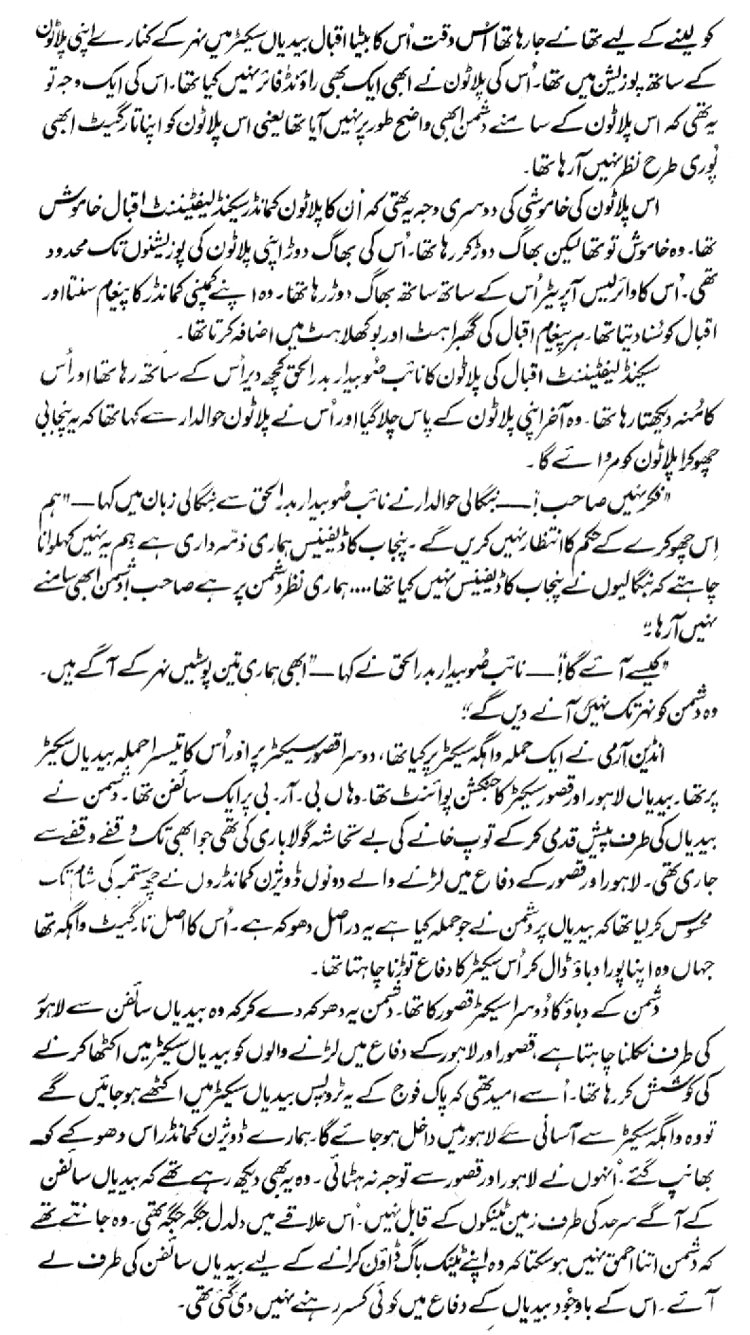 کو لینے کے لیے تھانے جا رہا تھا اُس وقت اُس کا بیٹا اقبال بیدیاں سیکٹر میں نہر کے کنارے اپنی پلاٹون
کے ساتھ پوزیشن میں تھا۔ اُس کی پلاٹون نے ابھی ایک بھی راؤنڈ فائر نہیں کیا تھا۔ اس کی ایک وجہ تو
یہ تھی کہ اس پلاٹون کے سامنے دشمن ابھی واضح طور پر نہیں آیا تھا یعنی اس پلاٹون کو اپنا ٹارگیٹ ابھی
پُوری طرح نظر نہیں آ رہا تھا۔
اس پلاٹون کی خاموشی کی دوسری وجہ یہ تھی کہ اِن کا پلاٹون کمانڈر سیکنڈ لیفٹیننٹ اقبال خاموش
تھا۔ وہ خاموش تو تھا لیکن بھاگ دوڑ کر رہا تھا۔ اُس کی بھاگ دوڑ اپنی پلاٹون کی پوزیشنوں تک محدود
تھی۔ اُس کا وائرلیس آپریٹر اُس کے ساتھ ساتھ بھاگ دوڑ رہا تھا۔ وہ اپنے کمپنی کمانڈر کا پیغام سنتا اور
اقبال کو سُنا دیتا تھا۔ ہر پیغام اقبال کی گھبراہٹ اور بوکھلاہٹ میں اضافہ کرتا تھا۔
سیکنڈ لیفٹیننٹ اقبال کی پلاٹون کا نائب صُوبیدار بدرالحق کچھ دیر اُس کے ساتھ رہا تھا اور اُس
کا مُنہ دیکھتا رہا تھا۔ وہ آخر اپنی پلاٹون کے پاس چلا گیا اور اُس نے پلاٹون حوالدار سے کہا تھا کہ یہ پنجابی
چھوکرا پلاٹون کو مروائے گا۔
”فکر نہیں صاحب!“ — بنگالی حوالدار نے نائب صُوبیدار بدرالحق سے بنگالی زبان میں کہا — ”ہم
اِس چھوکرے کے حکم کا انتظار نہیں کریں گے۔ پنجاب کا ڈیفینس ہماری ذمّہ داری ہے۔ ہم یہ نہیں کہلوانا
چاہتے کہ بنگالیوں نے پنجاب کا ڈیفینس نہیں کیا تھا.... ہماری نظر دشمن پر ہے صاحب! دُشمن ابھی سامنے
نہیں آ رہا۔“
”کیسے آئے گا!“ — نائب صُوبیدار بدرالحق نے کہا — ”ابھی ہماری تین پوسٹیں نہر کے آگے ہیں۔
وہ دشمن کو نہر تک نہیں آنے دیں گے۔“
انڈین آرمی نے ایک حملہ واہگہ سیکٹر پر کیا تھا، دوسرا قصور سیکٹر پر اور اُس کا تیسرا حملہ بیدیاں سیکٹر
پر تھا۔ بیدیاں لاہور اور قصور سیکٹر کا جنکشن پوائنٹ تھا۔ وہاں بی۔ آر۔ بی پر ایک سائفن تھا۔ دُشمن نے
بیدیاں کی طرف پیش قدمی کر کے توپ خانے کی بے تحاشہ گولا باری کی تھی جو ابھی تک وقفے وقفے سے
جاری تھی۔ لاہور اور قصور کے دفاع میں لڑنے والے دونوں ڈویژن کمانڈروں نے چھ ستمبر کی شام تک
محسوس کر لیا تھا کہ بیدیاں پر دشمن نے جو حملہ کیا ہے یہ دراصل دھوکہ ہے۔ اُس کا اصل ٹارگیٹ واہگہ تھا
جہاں وہ اپنا پورا دباؤ ڈال کر اُس سیکٹر کا دفاع توڑنا چاہتا تھا۔
دُشمن کے دباؤ کا دُوسرا سیکٹر قصور کا تھا۔ دُشمن یہ دھوکہ دے کر کہ وہ بیدیاں سائفن سے لاہور
کی طرف نکلنا چاہتا ہے، قصور اور لاہور کے دفاع میں لڑنے والوں کو بیدیاں سیکٹر میں اکٹھا کرنے
کی کوشش کر رہا تھا۔ اُسے امید تھی کہ پاک فوج کے یہ ٹروپس بیدیاں سیکٹر میں اکٹھے ہو جائیں گے
تو وہ واہگہ سیکٹر سے آسانی سے لاہور میں داخل ہو جائے گا۔ ہمارے ڈویژن کمانڈر اس دھوکے کو
بھانپ گئے۔ اُنہوں نے لاہور اور قصور سے توجہ نہ ہٹائی۔ وہ یہ بھی دیکھ رہے تھے کہ بیدیاں سائفن
کے آگے سرحد کی طرف زمین ٹینکوں کے قابل نہیں۔ اُس علاقے میں دلدل جگہ جگہ تھی۔ وہ جانتے تھے
کہ دشمن اتنا احمق نہیں ہو سکتا کہ وہ اپنے ٹینک باگ ڈاؤن کرانے کے لیے بیدیاں سائفن کی طرف لے
آئے۔ اس کے باوجُود بیدیاں کے دفاع میں کوئی کسر رہنے نہیں دی گئی تھی۔